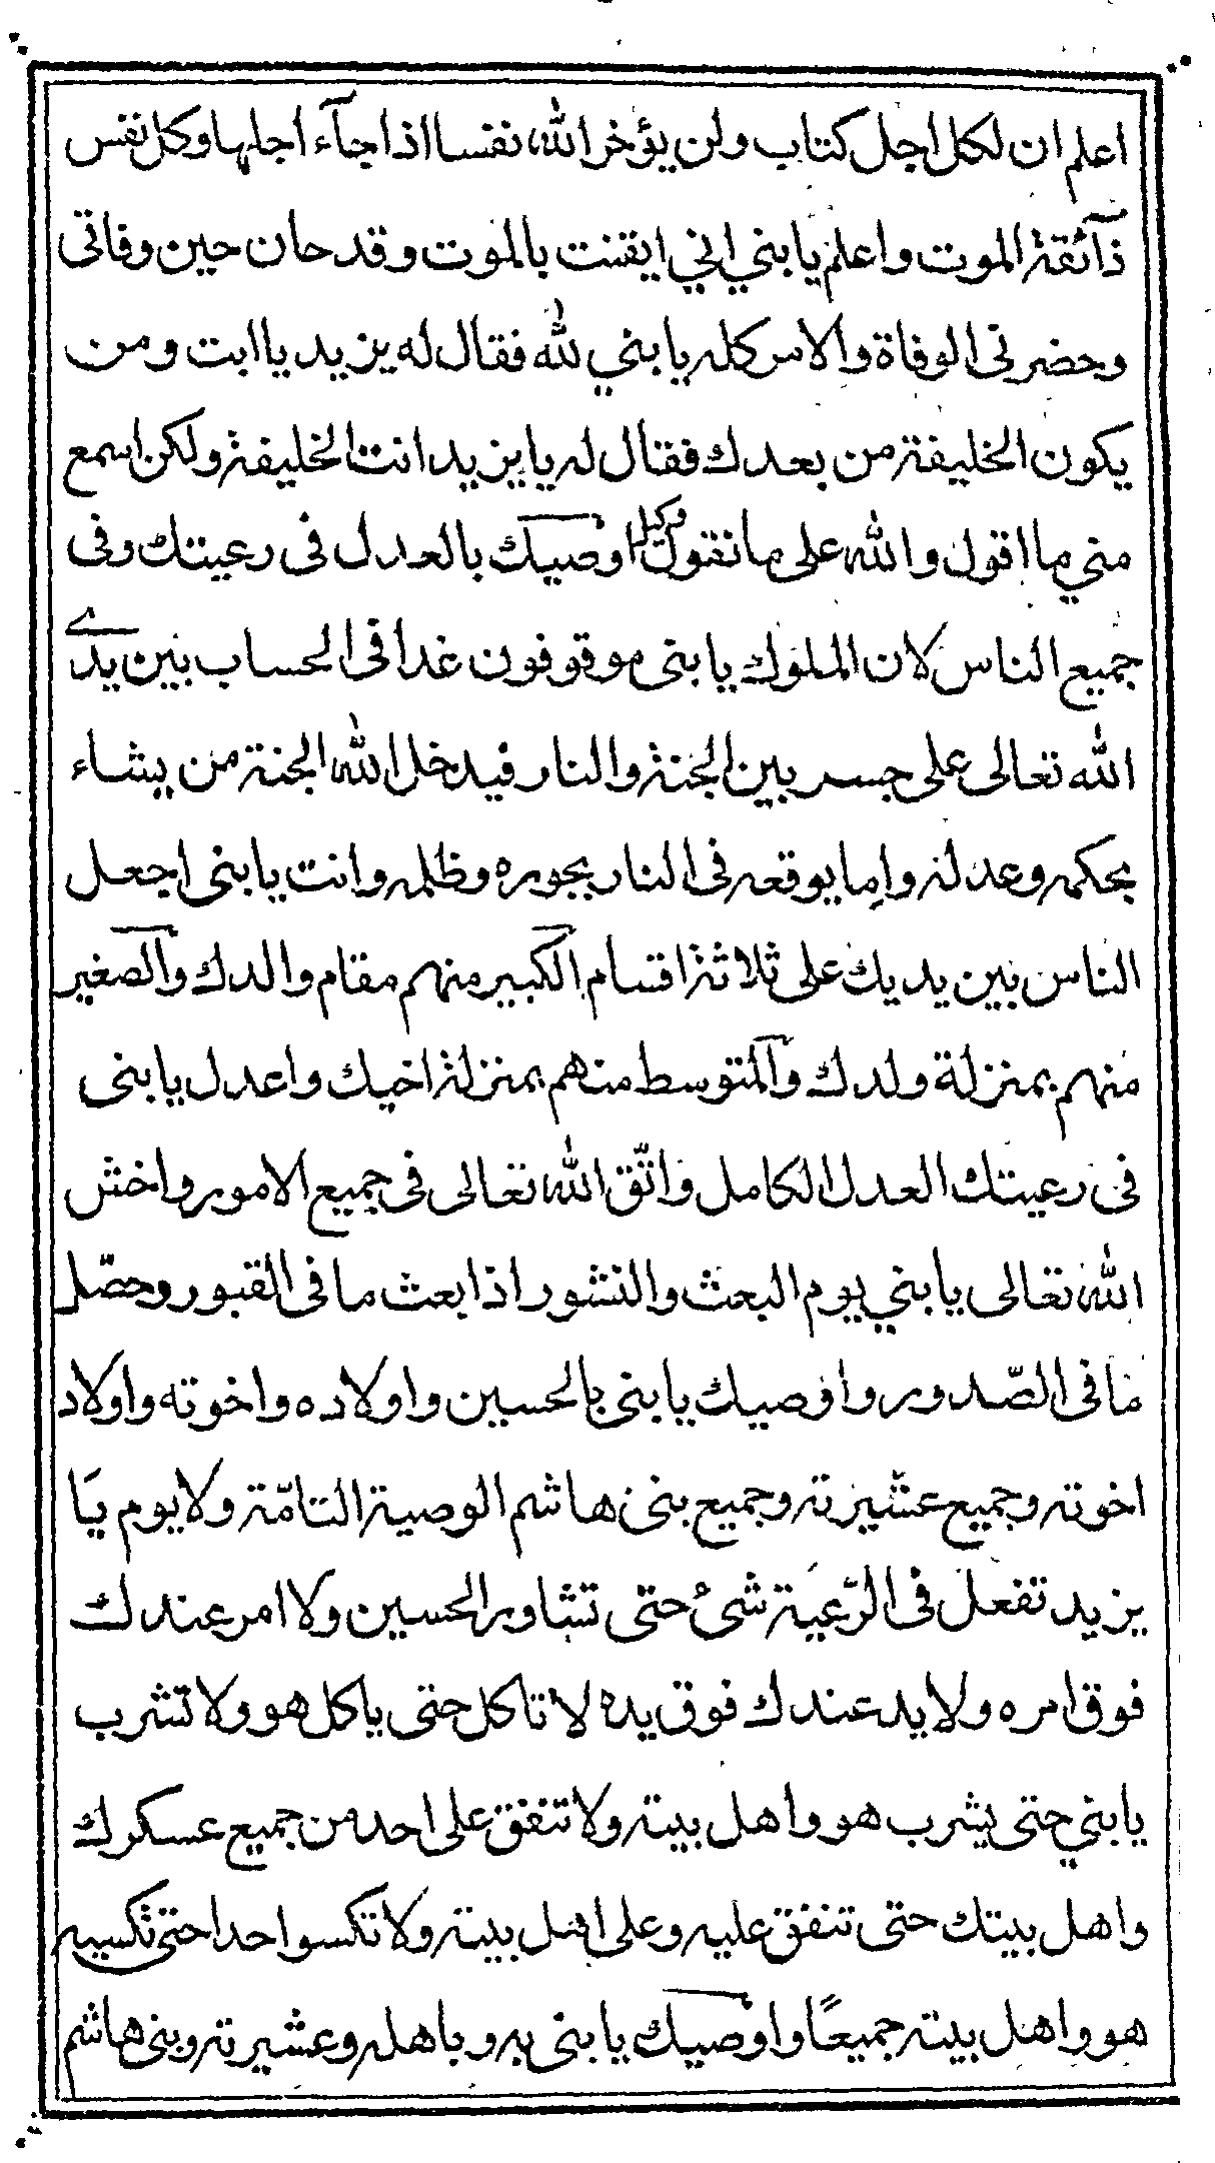 اعلم ان لكل اجل كتاب ولن يؤخر الله نفسا اذا جآء اجلها وكل نفس
ذآئقة الموت واعلم يا بني اني ايقنت بالموت وقد حان حين وفاتى
وحضرتى الوفاة والامر كله يا بني لله فقال له يزيد يا ابت ومن
يكون الخليفة من بعدك فقال له يا يزيد انت الخليفة ولكن اسمع
مني ما اقول والله على ما نقول وكيل اوصيك بالعدل فى رعيتك وفى
جميع الناس لان الملوك يا بنى موقوفون غدا فى الحساب بين يدے
الله تعالى على جسر بين الجنة والنار فيدخل الله الجنة من يشاء
بحكمه وعدله واما يوقعه فى النار بجوره وظلمه وانت يا بنى اجعل
الناس بين يديك على ثلاثة اقسام الكبير منهم مقام والدك والصغير
منهم بمنزلة ولدك والمتوسط منهم بمنزلة اخيك واعدل يا بنى
فى رعيتك العدل الكامل واتّق الله تعالى فى جميع الامور واخش
الله تعالى يا بني يوم البعث والنشور اذا بعث ما فى القبور وحصّل
ما فى الصّدور واوصيك يا بنى بالحسين واولاده واخوته واولاد
اخوته وجميع عشيرته وجميع بنى هاشم الوصية التامّة ولا يوم يا
يزيد تفعل فى الرّعية شىء حتى تشاور الحسين ولا امر عندك
فوق امره ولا يد عندك فوق يده لا تاكل حتى ياكل هو ولا تشرب
يا بني حتى يشرب هو واهل بيته ولا تنفق على احد من جميع عسكرك
واهل بيتك حتى تنفق عليه وعلى اهل بيته ولا تكسو احدا حتى تكسيه
هو واهل بيته جميعًا واوصيك يا بنى به وباهله وعشيرته وبنى هاشم